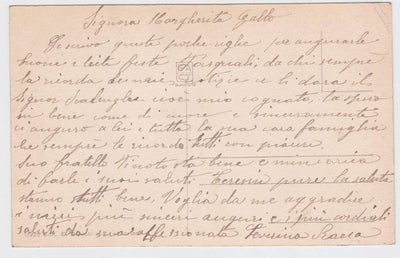 Signora Margherita Gallo
Le scrivo queste poche righe per augurarle
buone e liete feste Pasquali da chi sempre
la ricorda le mie notizie ce li darà il
Signor cioe mio cognato, la spero
in bene come di cuore e sinceramente
ci auguro a lei e tutta la sua cara famiglia
che sempre le ricordo tutti con piacere.
Suo fratello sta bene e mi
di farle i suoi saluti. Teresin pure la saluta
stanno tutti bene, Voglia da me aggradire
i miei più sinceri auguri e i più cordiali
saluti da sua affezzionata Severina